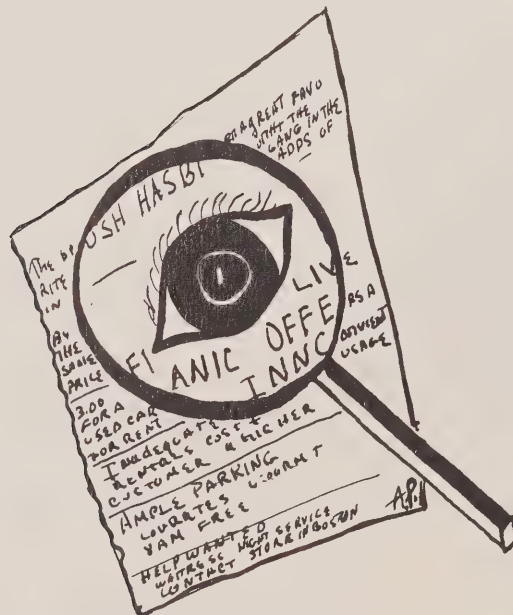 A GREAT FAVO
THAT THE
GANG IN THE
ADDS OF
USH HASBI
THE
RITE
IN
LIVE
BY
THE
SAME
PRICE
FI ANIC OFFE RS A
INNC
USAGE
3.00
FOR A
USED CAR
FOR RENT
INADEQUATE
RENTALS COST
CUSTOMER HIGHER
AMPLE PARKING
LOW RATES
YAM FREE
HELP WANTED
WAITRESS NIGHT SERVICE
CONTACT STORE IN BOSTON
A.P.